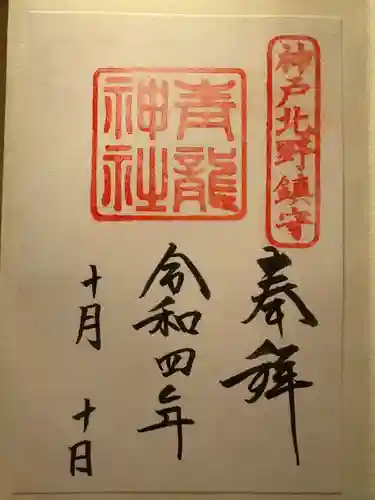 神戸北野鎮守
奉拝
青龍
神社
令和四年
十月
十日